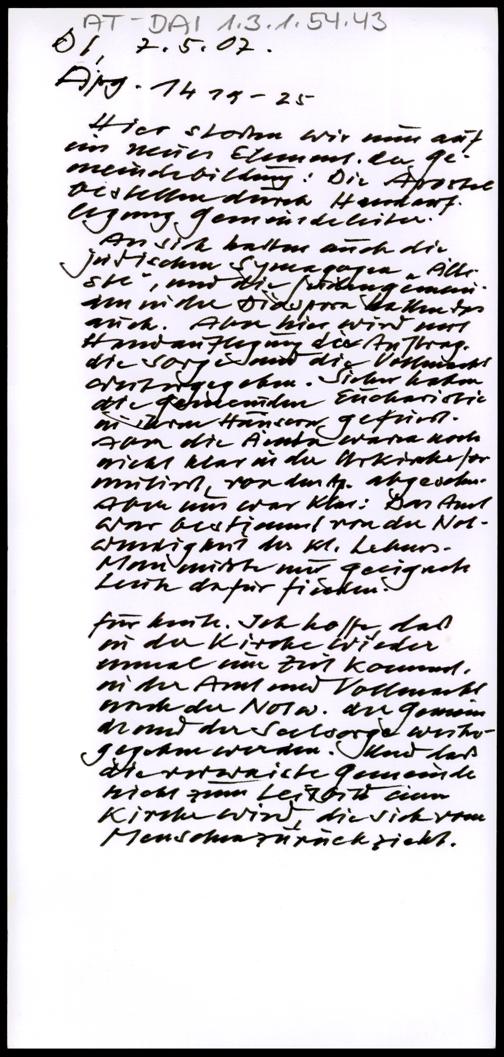 AT-DAI 1.3.1.54.43
Di, 7.5.02.
Apg. 14 19-25
Hier stoßen wir nun auf
ein neues Element der Ge-
meindebildung: Die Apostel
bestellen durch Handauf-
legung Gemeindeleiter.
An sich hatten auch die
jüdischen Synagogen "Älte-
ste", und die
in der Diaspora hatten das
auch. Aber hier wird mit
Handauflegung der Auftrag,
die Sorge und die Vollmacht
weitergegeben. Sicher haben
die Gemeinden Eucharistie
in ihren Häusern gefeiert.
Aber die Ämter waren noch
nicht klar in der Urkirche for-
muliert, von den Ap. abgesehen.
Aber eins war klar: Das Amt
war bestimmt von der Not-
wendigkeit des kl. Lebens.
Man mußte nur geeignete
Leute dafür finden.
Für heute. Ich hoffe, daß
in der Kirche wieder
einmal eine Zeit kommt,
in der Amt und Vollmacht
nach der Notw. der Gemein-
de und der Seelsorge weiter-
gegeben werden. Und daß
die verwaiste Gemeinde
nicht zum Leitbild einer
Kirche wird, die sich vom
Menschen zurückzieht.